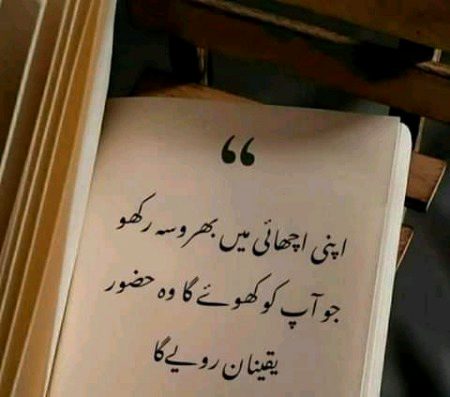 “
اپنی اچھائی میں بھروسہ رکھو
جو آپ کو کھوئے گا وہ حضور
یقینان رویےگا